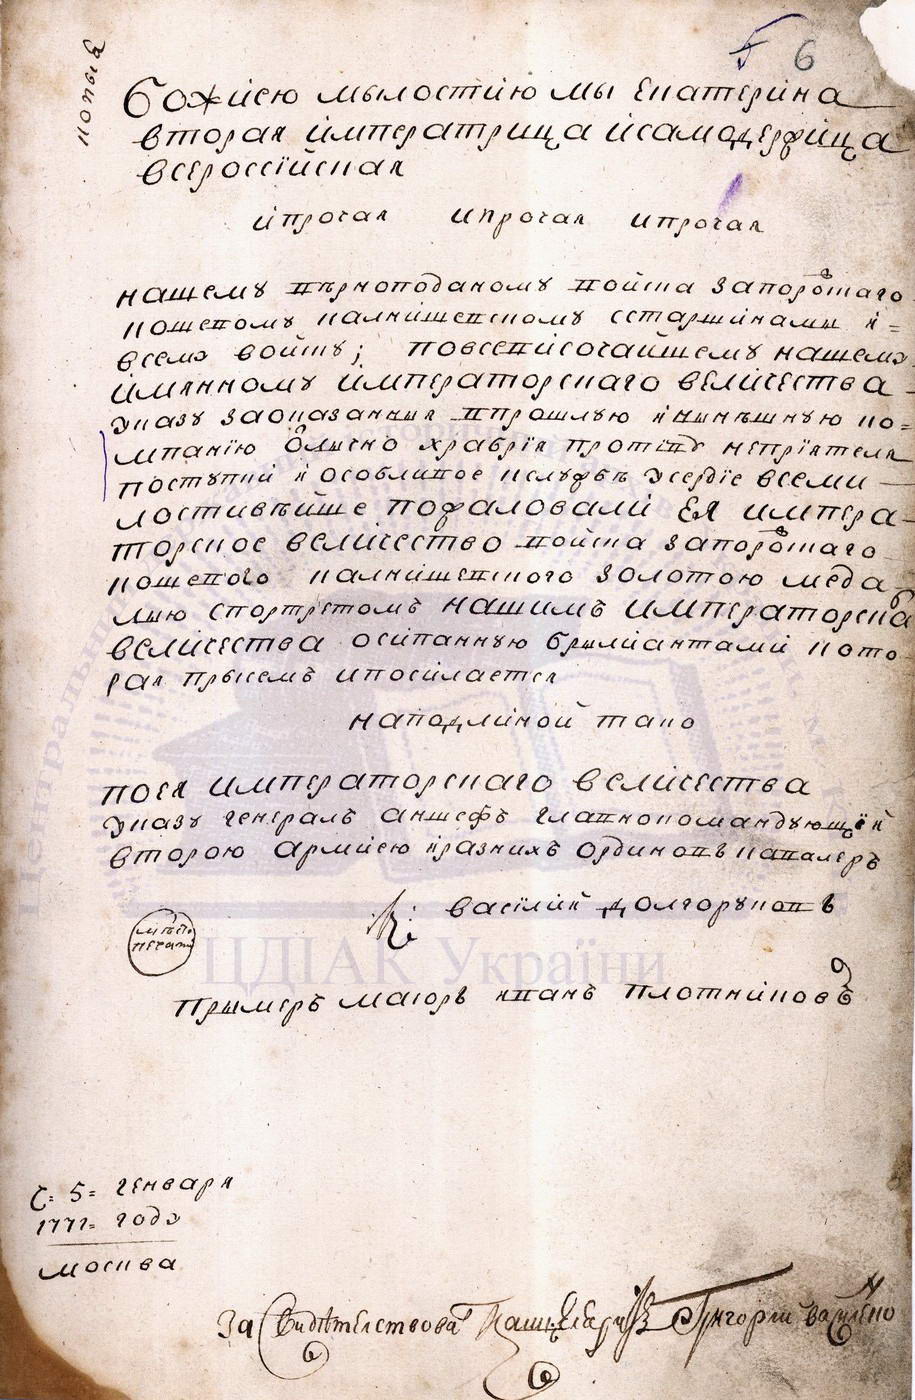 копыя
6
Божіею мылостію мы Екатеріна
вторая імператрица ісамодержица
всероссійская
іпрочая ипрочая ипрочая
нашему вѣрноподаному войска запорожскаго
кошевому калнишевскому сстаршинами і-
всему войску; повсевисочайшему нашему
імянному імператорскаго велічества
указу заоказанныя впрошлую інынѣшную ко-
мпанію храбрія противу непріятеля
поступкі і особливое кслужбѣ усердіе всеми-
лостивѣйше пожаловалі Ея импера-
торское велічество войска запорожскаго
кошевого калнишевского золотою меда-
лью спортретомъ нашимъ императорска
велічества осіпанную брыліантамі кото-
рая присемъ ипосілается
наподліной тако
поея императорскаго велічества
указу генералъ аншефъ главнокомандующій
второю арміею іразнихъ ординовъ кавалеръ
василій долгоруковъ
мѣсто
печати
примеръ маіоръ іванъ плотніковъ
5 генваря
1771 году
москва
Засвидѣтелствова Григорій
Центральний
ЦДІАК України